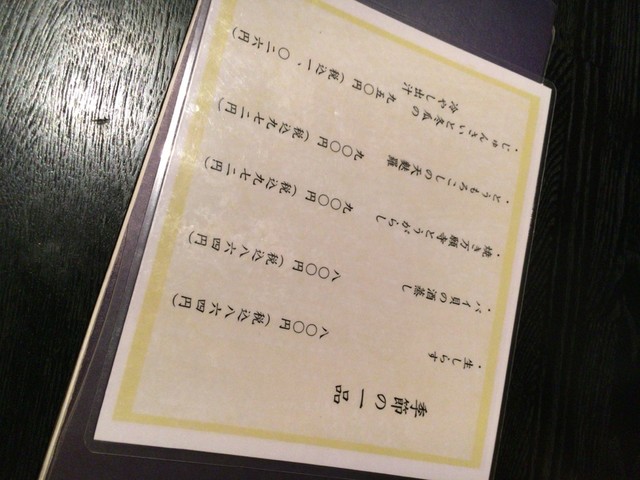 季節の一品
・生しらす
八〇〇円（税込八六四円）
・バイ貝の酒蒸し
八〇〇円（税込八六四円）
・焼き万願寺とうがらし
九〇〇円（税込九七二円）
・とうもろこしの天麩羅
九〇〇円（税込九七二円）
・じゅんさいと冬瓜の
冷やし出汁
九五〇円（税込一、〇二六円）